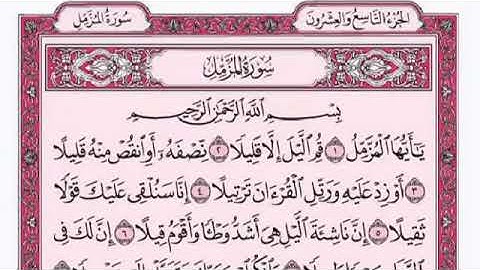 الجزء التاسع والعشرون
سورة المزمل
سُورَةُ المُزَّمِّلِ
بِسْمِ ٱللَّهِ ٱلرَّحْمَٰنِ ٱلرَّحِيمِ
يَٰٓأَيُّهَا ٱلْمُزَّمِّلُ ١ قُمِ ٱلَّيْلَ إِلَّا قَلِيلًا ٢ نِّصْفَهُۥٓ أَوِ ٱنقُصْ مِنْهُ قَلِيلًا
٣ أَوْ زِدْ عَلَيْهِ وَرَتِّلِ ٱلْقُرْءَانَ تَرْتِيلًا ٤ إِنَّا سَنُلْقِى عَلَيْكَ قَوْلًا
ثَقِيلًا ٥ إِنَّ نَاشِئَةَ ٱلَّيْلِ هِىَ أَشَدُّ وَطْـًٔا وَأَقْوَمُ قِيلًا ٦ إِنَّ لَكَ فِى